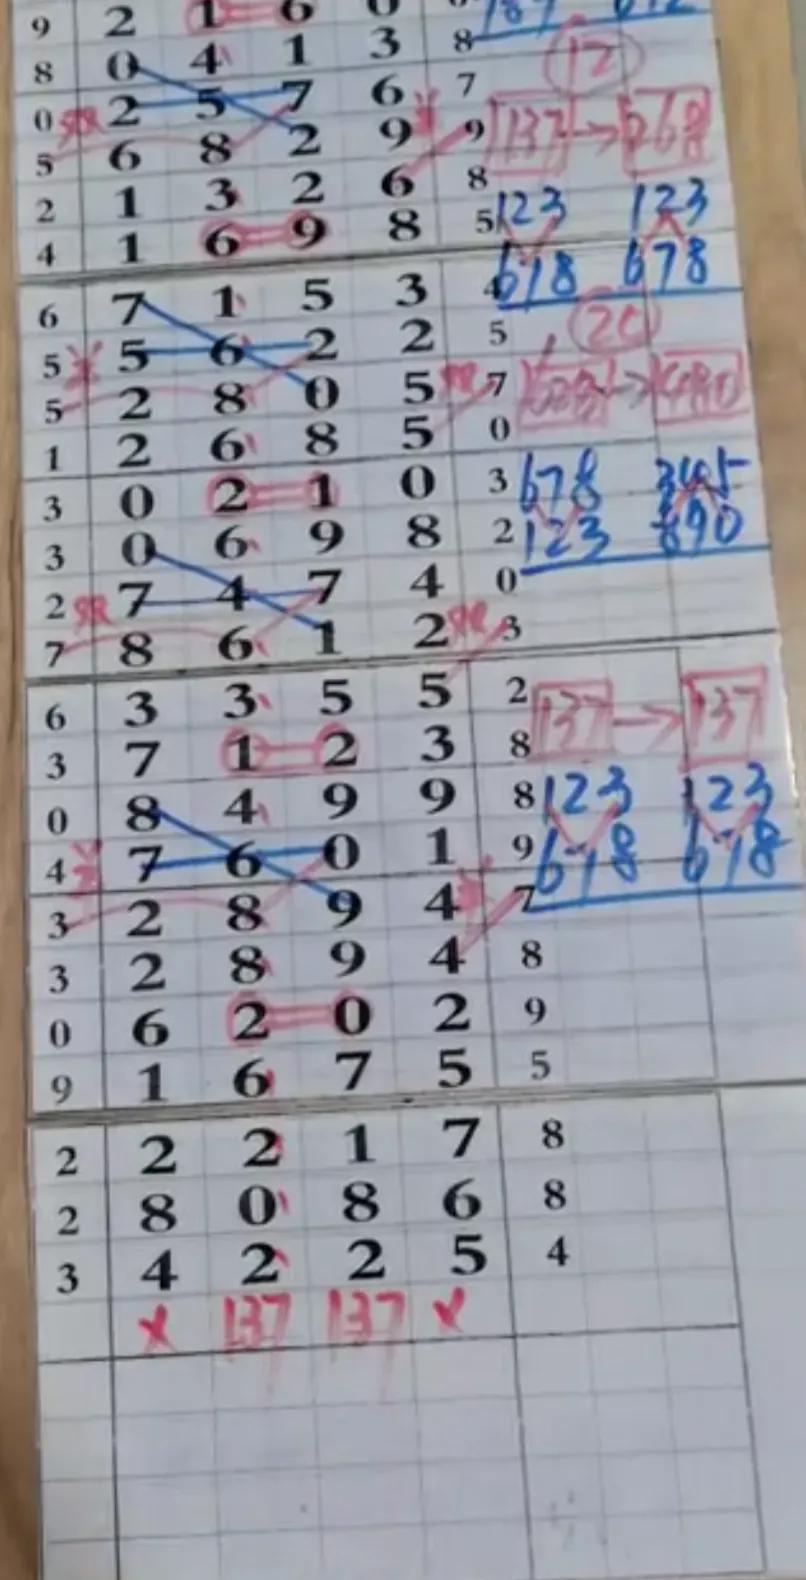 9 2 1 6 0
8 0 4 1 3 8
0 2 5 7 6 7
5 6 8 2 9 9 137 → 268
2 1 3 2 6 8
4 1 6 9 8 5 123 123
678 678
6 7 1 5 3 4
5 5 6 2 2 5
5 2 8 0 5 7
1 2 6 8 5 0
3 0 2 1 0 3 678 345
3 0 6 9 8 2 123 890
2 7 4 7 4 0
7 8 6 1 2 3
6 3 3 5 5 2 137 → 137
3 7 1 2 3 8
0 8 4 9 9 8 123 123
4 7 6 0 1 9 678 678
3 2 8 9 4 7
3 2 8 9 4 8
0 6 2 0 2 9
9 1 6 7 5 5
2 2 2 1 7 8
2 8 0 8 6 8
3 4 2 2 5 4
x 137 137 x